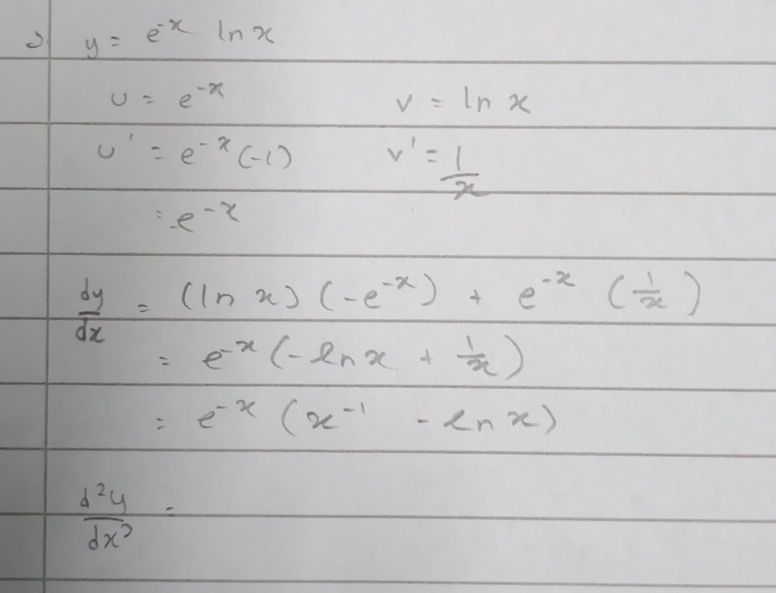 2) y = e^{-x} ln x
u = e^{-x} v = ln x
u' = e^{-x}(-1) v' = 1/x
= e^{-x}
dy/dx = (ln x)(-e^{-x}) + e^{-x} (1/x)
= e^{-x}(-ln x + 1/x)
= e^{-x} (x^{-1} - ln x)
d²y/dx² =